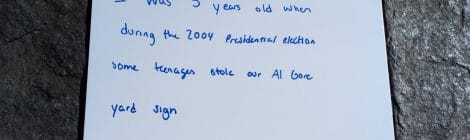 I was 5 years old when
during the 2004 Presidential election
some teenagers stole our Al Gore
yard sign